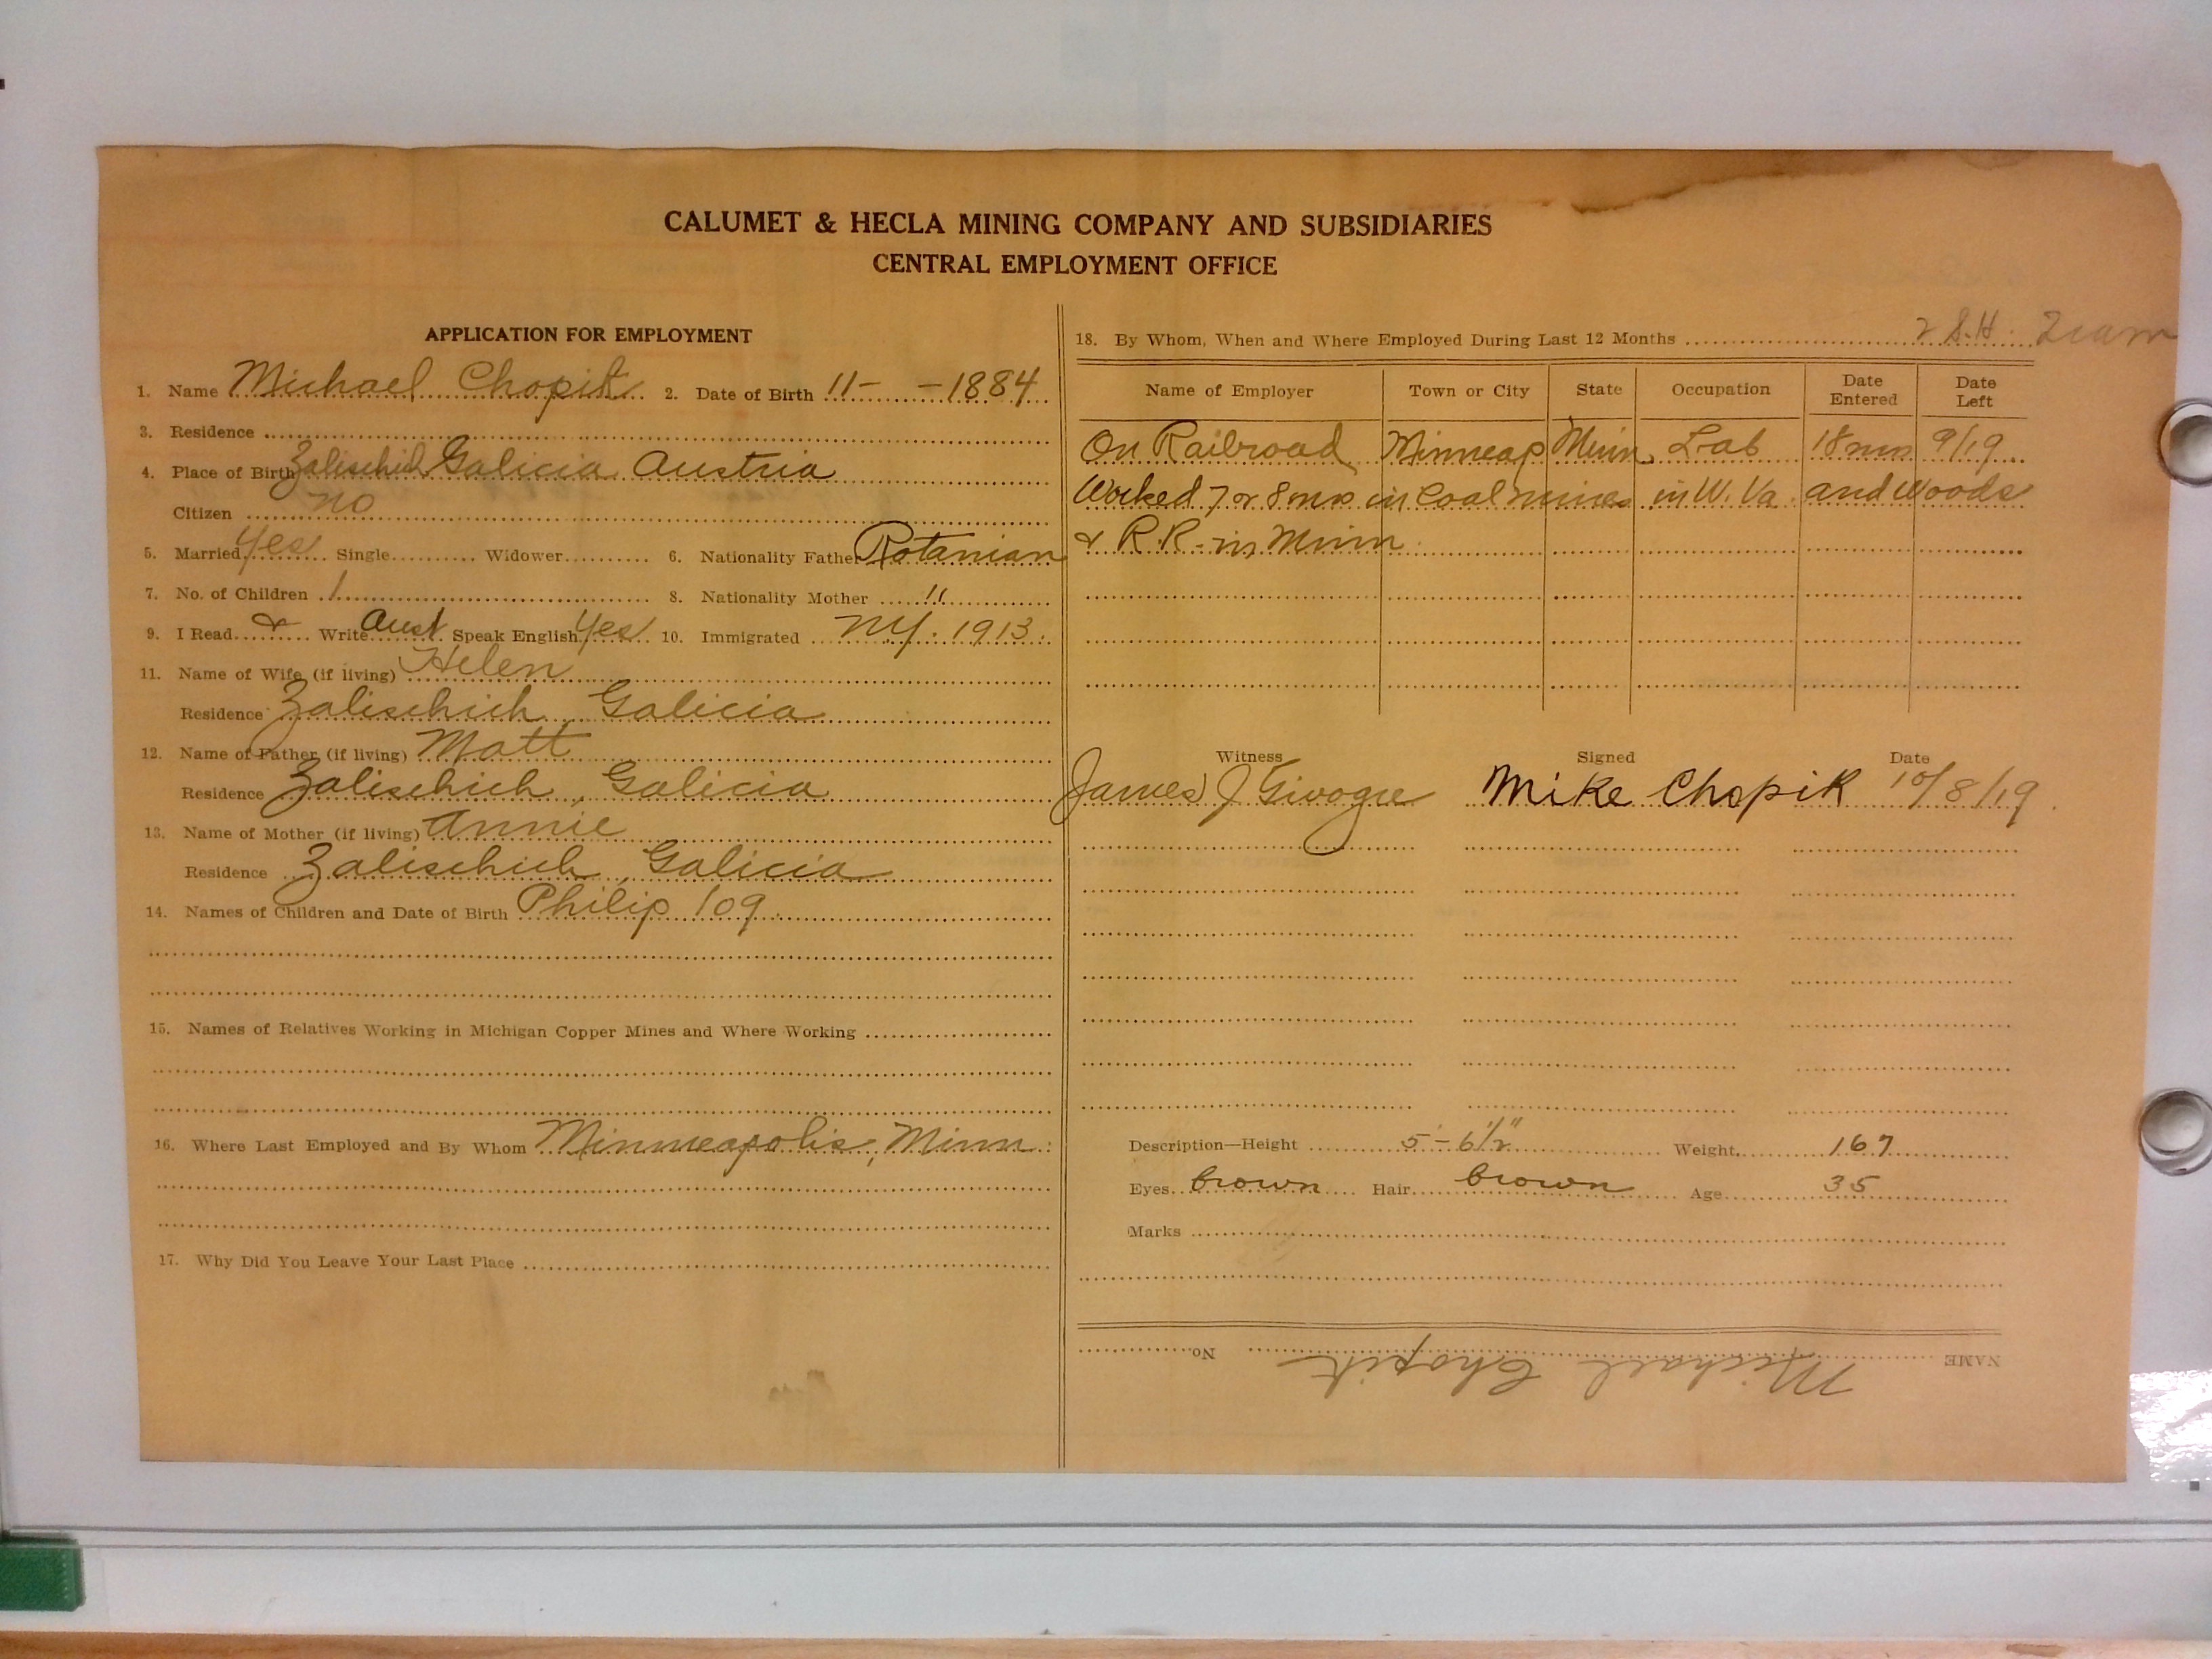 CALUMET & HECLA MINING COMPANY AND SUBSIDIARIES
CENTRAL EMPLOYMENT OFFICE
APPLICATION FOR EMPLOYMENT
1. Name Michael Chopik 2. Date of Birth 11- -1884
3. Residence
4. Place of Birth Zalischich Galicia Austria
Citizen no
5. Married yes Single Widower 6. Nationality Father Rotanian
7. No. of Children 1 8. Nationality Mother "
9. I Read & Write Aust Speak English yes 10. Immigrated NY. 1913
11. Name of Wife (if living) Helen
Residence Zalischich, Galicia
12. Name of Father (if living) Matt
Residence Zalischich, Galicia
13. Name of Mother (if living) Annie
Residence Zalischich, Galicia
14. Names of Children and Date of Birth Philip 109
15. Names of Relatives Working in Michigan Copper Mines and Where Working
16. Where Last Employed and By Whom Minneapolis, Minn.
17. Why Did You Leave Your Last Place
18. By Whom, When and Where Employed During Last 12 Months 2 S.H.
Name of Employer Town or City State Occupation Date Entered Date Left
On Railroad Minneap Minn Lab 18 mos 9/19
Worked 7 or 8 mos in Coal mines in W. Va. and Woods
& R.R. in Minn
Witness Signed Date
James J Mike Chopik 10/8/19
Description—Height 5'-6 1/2" Weight 167
Eyes brown Hair brown Age 35
Marks
NAME Michael Chopik No.